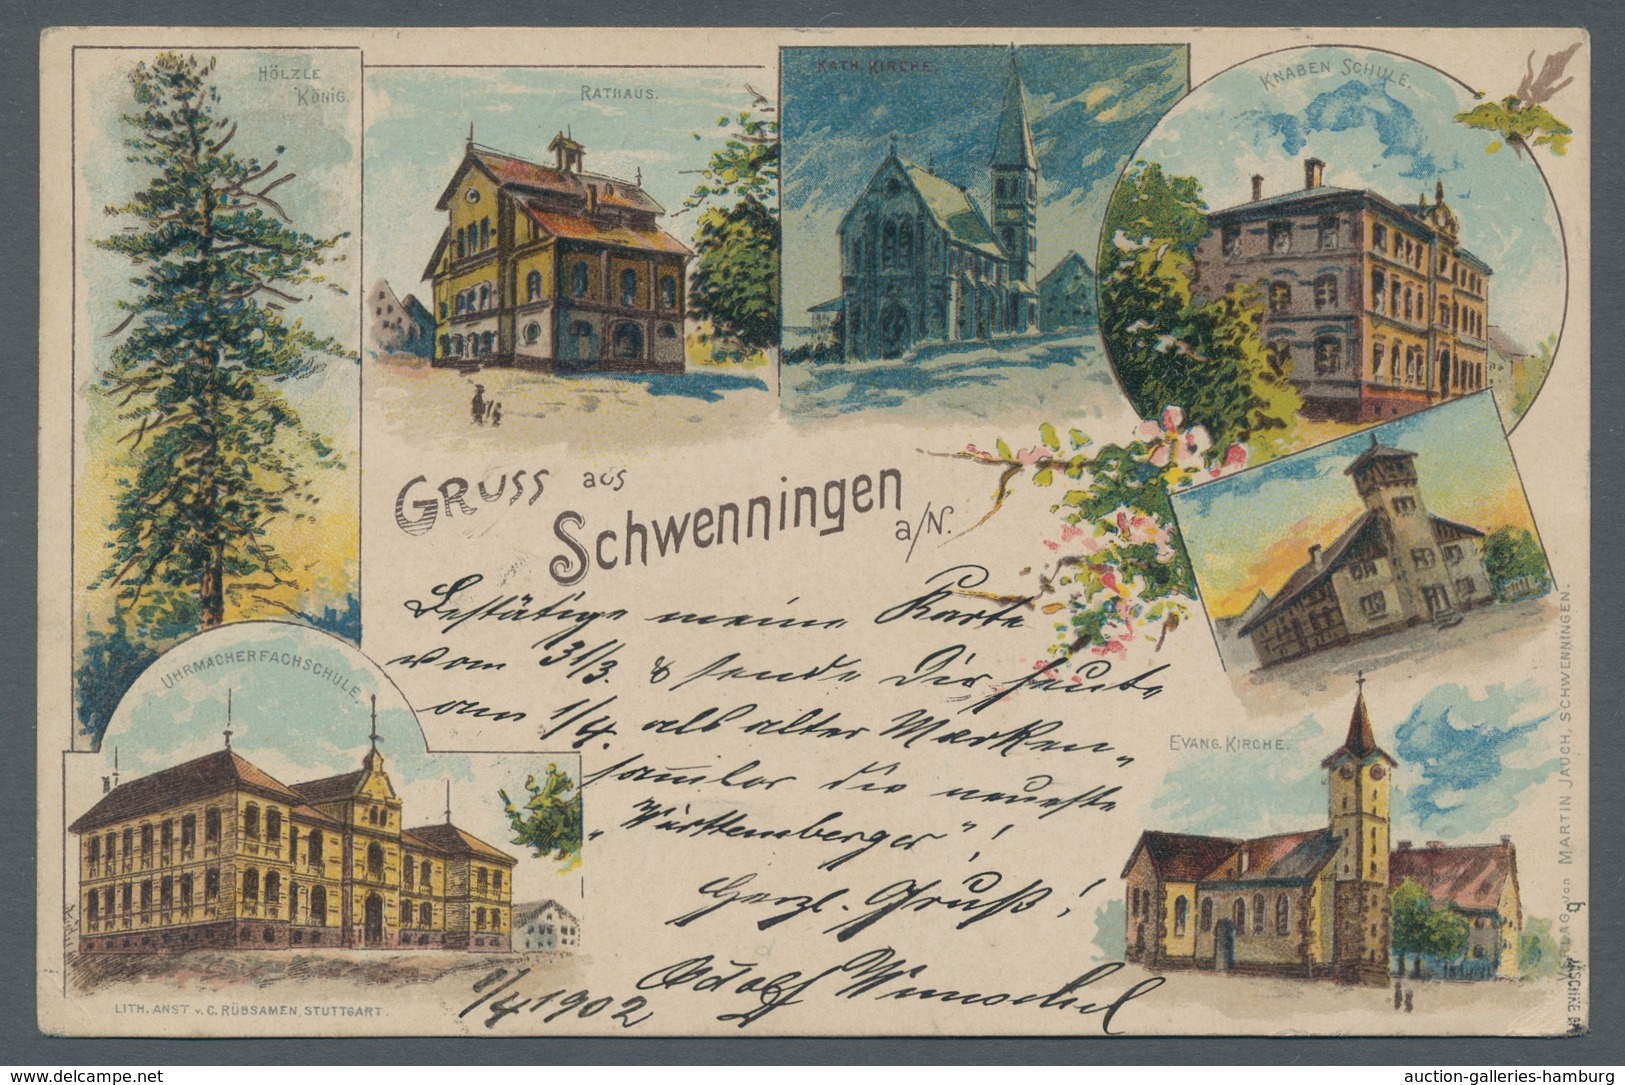 HÖLZLE
KÖNIG.
RATHAUS.
KATH. KIRCHE.
KNABEN SCHULE.
GRUSS aus
Schwenningen
a/N.
Bestätige meine Karte
vom 31/3. & sende Dir heute
am 1/4. als alter Marken-
sammler die neueste
„Württemberger"!
Herzl. Gruß!
Adolf
1/4 1902
UHRMACHERFACHSCHULE.
EVANG. KIRCHE.
LITH. ANST. v. C. RÜBSAMEN, STUTTGART.
VERLAG von MARTIN JAUCH, SCHWENNINGEN.
www.delcampe.net
auction-galleries-hamburg